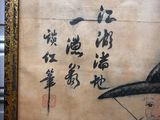 江湖滿地
一漁翁
績仁筆